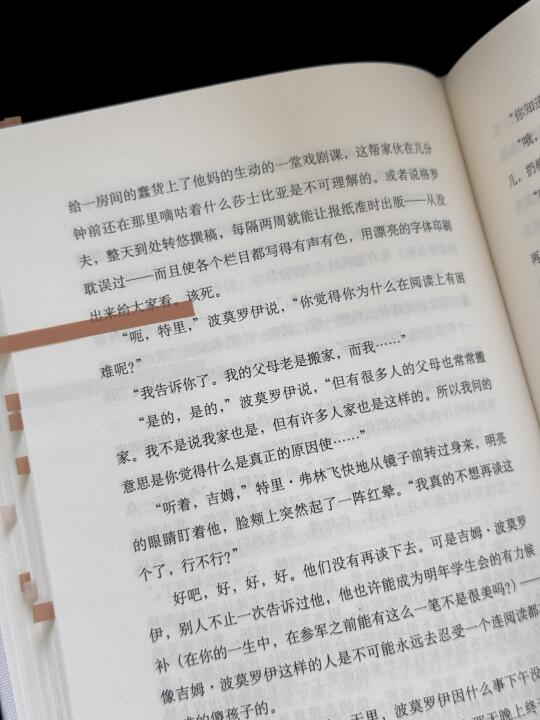 给一房间的蠢货上了他妈的生动的一堂戏剧课，这帮家伙在几分
钟前还在那里嘀咕着什么莎士比亚是不可理解的。或者说格罗
夫，整天到处转悠撰稿，每隔两周就能让报纸准时出版——从没
耽误过——而且使各个栏目都写得有声有色，用漂亮的字体印刷
出来给大家看。该死。
“呃，特里，”波莫罗伊说，“你觉得你为什么在阅读上有困
难呢？”
“我告诉你了。我的父母老是搬家，而我……”
“是的，是的，”波莫罗伊说，“但有很多人的父母也常常搬
家。我不是说我家也是，但有许多人家也是这样的。所以我问的
意思是你觉得什么是真正的原因使……”
“听着，吉姆，”特里·弗林飞快地从镜子前转过身来，明亮
的眼睛盯着他，脸颊上突然起了一阵红晕。“我真的不想再谈这
个了，行不行？”
好吧，好，好，好。他们没有再谈下去。可是吉姆·波莫罗
伊，别人不止一次告诉过他，他也许能成为明年学生会的有力候
补（在你的一生中，在参军之前能有这么一笔不是很美吗？）——
像吉姆·波莫罗伊这样的人是不可能永远去忍受一个连阅读都
的傻孩子的。
天里，波莫罗伊因什么事下午没
天晚上终
“你知道
“哦，
儿，扔
再